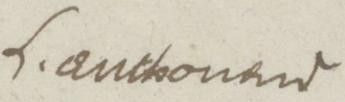 L. Anthonard